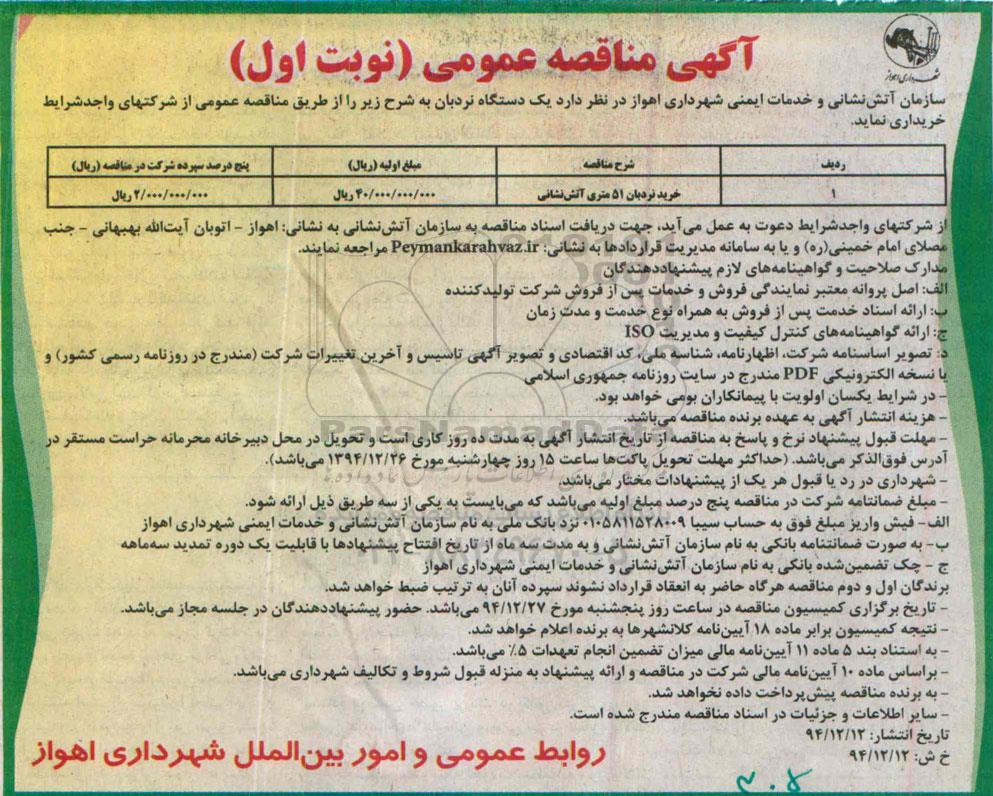 شهرداری اهواز
آگهی مناقصه عمومی (نوبت اول)
سازمان آتش‌نشانی و خدمات ایمنی شهرداری اهواز در نظر دارد یک دستگاه نردبان به شرح زیر را از طریق مناقصه عمومی از شرکتهای واجدشرایط
خریداری نماید.
ردیف شرح مناقصه مبلغ اولیه (ریال) پنج درصد سپرده شرکت در مناقصه (ریال)
۱ خرید نردبان ۵۱ متری آتش‌نشانی ۴۰/۰۰۰/۰۰۰/۰۰۰ ریال ۲/۰۰۰/۰۰۰/۰۰۰ ریال
از شرکتهای واجدشرایط دعوت به عمل می‌آید، جهت دریافت اسناد مناقصه به سازمان آتش‌نشانی به نشانی: اهواز - اتوبان آیت‌الله بهبهانی - جنب
مصلای امام خمینی(ره) و یا به سامانه مدیریت قراردادها به نشانی: Peymankarahvaz.ir مراجعه نمایند.
مدارک صلاحیت و گواهینامه‌های لازم پیشنهاددهندگان
الف: اصل پروانه معتبر نمایندگی فروش و خدمات پس از فروش شرکت تولیدکننده
ب: ارائه اسناد خدمت پس از فروش به همراه نوع خدمت و مدت زمان
ج: ارائه گواهینامه‌های کنترل کیفیت و مدیریت ISO
د: تصویر اساسنامه شرکت، اظهارنامه، شناسه ملی، کد اقتصادی و تصویر آگهی تاسیس و آخرین تغییرات شرکت (مندرج در روزنامه رسمی کشور) و
یا نسخه الکترونیکی PDF مندرج در سایت روزنامه جمهوری اسلامی
- در شرایط یکسان اولویت با پیمانکاران بومی خواهد بود.
- هزینه انتشار آگهی به عهده برنده مناقصه می‌باشد.
ParsNamadData
- مهلت قبول پیشنهاد نرخ و پاسخ به مناقصه از تاریخ انتشار آگهی به مدت ده روز کاری است و تحویل در محل دبیرخانه محرمانه حراست مستقر در
آدرس فوق‌الذکر می‌باشد. (حداکثر مهلت تحویل پاکت‌ها ساعت ۱۵ روز چهارشنبه مورخ ۱۳۹۴/۱۲/۲۶ می‌باشد).
- شهرداری در رد یا قبول هر یک از پیشنهادات مختار می‌باشد.
- مبلغ ضمانتنامه شرکت در مناقصه پنج درصد مبلغ اولیه می‌باشد که می‌بایست به یکی از سه طریق ذیل ارائه شود.
الف- فیش واریز مبلغ فوق به حساب سیبا ۰۱۰۵۸۱۱۵۲۸۰۰۹ نزد بانک ملی به نام سازمان آتش‌نشانی و خدمات ایمنی شهرداری اهواز
ب- به صورت ضمانتنامه بانکی به نام سازمان آتش‌نشانی و به مدت سه ماه از تاریخ افتتاح پیشنهادها با قابلیت یک دوره تمدید سه‌ماهه
ج - چک تضمین‌شده بانکی به نام سازمان آتش‌نشانی و خدمات ایمنی شهرداری اهواز
برندگان اول و دوم مناقصه هرگاه حاضر به انعقاد قرارداد نشوند سپرده آنان به ترتیب ضبط خواهد شد.
- تاریخ برگزاری کمیسیون مناقصه در ساعت روز پنجشنبه مورخ ۹۴/۱۲/۲۷ می‌باشد. حضور پیشنهاددهندگان در جلسه مجاز می‌باشد.
- نتیجه کمیسیون برابر ماده ۱۸ آیین‌نامه کلانشهرها به برنده اعلام خواهد شد.
- به استناد بند ۵ ماده ۱۱ آیین‌نامه مالی میزان تضمین انجام تعهدات ۵٪ می‌باشد.
- براساس ماده ۱۰ آیین‌نامه مالی شرکت در مناقصه و ارائه پیشنهاد به منزله قبول شروط و تکالیف شهرداری می‌باشد.
- به برنده مناقصه پیش‌پرداخت داده نخواهد شد.
- سایر اطلاعات و جزئیات در اسناد مناقصه مندرج شده است.
تاریخ انتشار: ۹۴/۱۲/۱۲
خ ش: ۹۴/۱۲/۱۲
روابط عمومی و امور بین‌الملل شهرداری اهواز